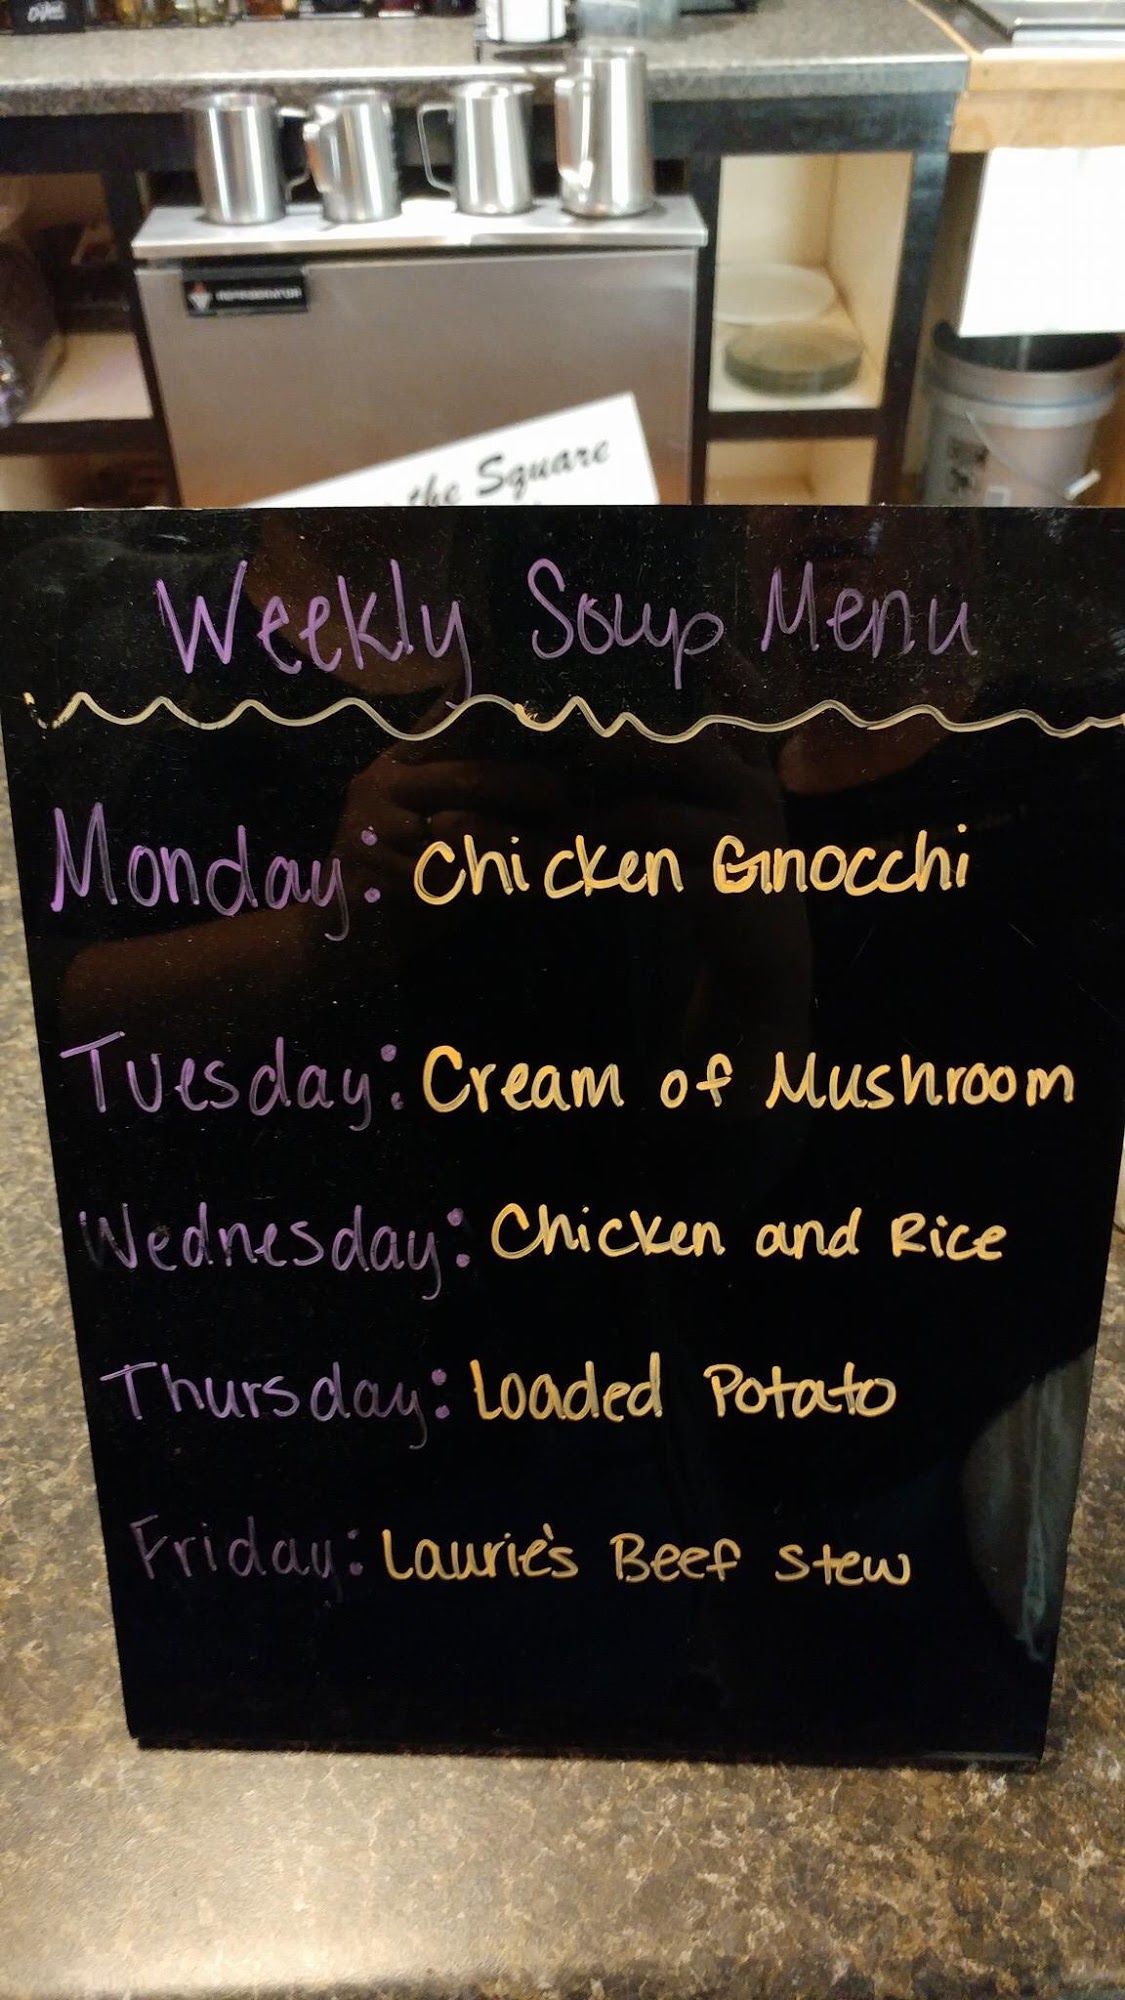 REFRIGERATOR
the Square
Weekly Soup Menu
Monday: Chicken Gnocchi
Tuesday: Cream of Mushroom
Wednesday: Chicken and Rice
Thursday: Loaded Potato
Friday: Laurie's Beef Stew